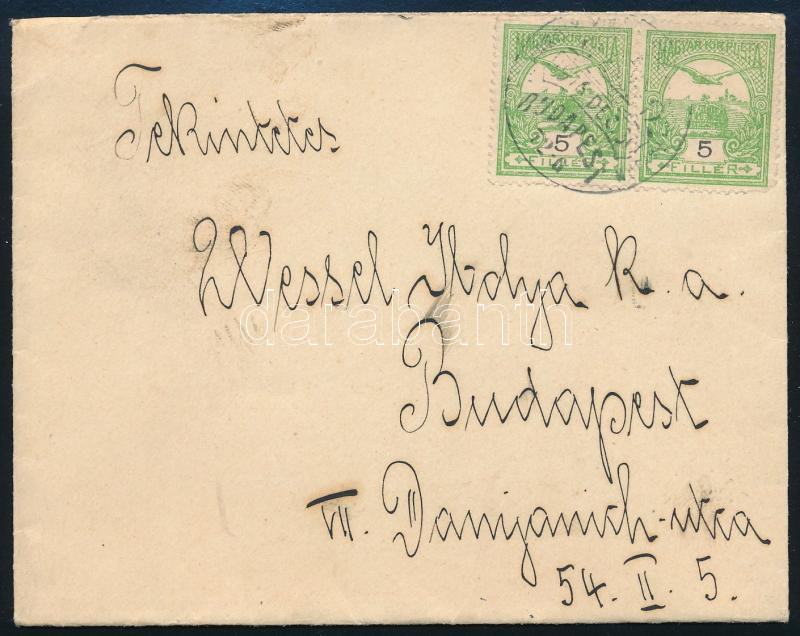 MAGYAR KIR. POSTA
5
FILLÉR
MAGYAR KIR. POSTA
5
FILLÉR
BUDAPEST
Tekintetes
Wessel Ibolya k. a.
Budapest
VII. Damjanich-utca
54. II. 5.
darabanth